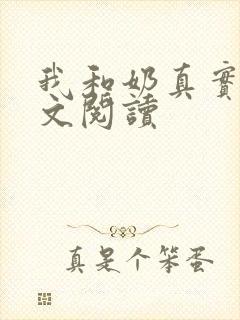 我和奶真實
文閱讀
真是个笨蛋